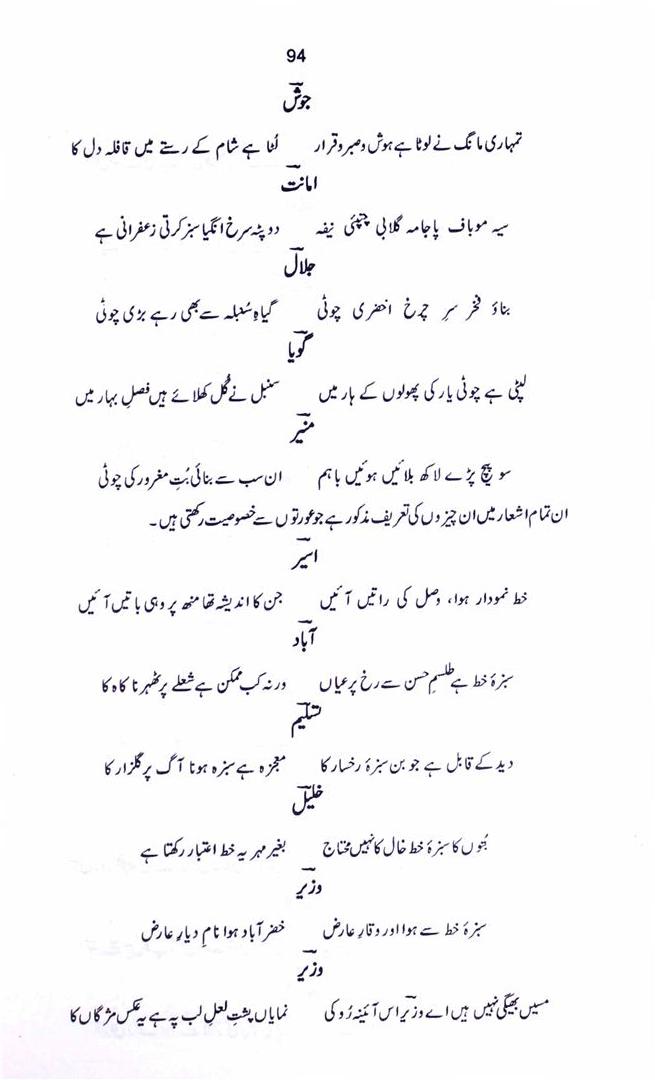 94
جوشؔ
تمہاری مانگ نے لوٹا ہے ہوش و صبر و قرار    لٹا ہے شام کے رستے میں قافلہ دل کا
امانتؔ
سیہ موباف پاجامہ گلابی چمپئی نیفہ    دوپٹہ سرخ انگیا سبز کرتی زعفرانی ہے
جلالؔ
بناؤ فخر سرِ چرخ اخضری چوٹی    گیاہِ سُنبلہ سے بھی رہے بڑی چوٹی
گویاؔ
لپٹی ہے چوٹی یار کی پھولوں کے ہار میں    سنبل نے گُل کھلائے ہیں فصلِ بہار میں
منیرؔ
سو پیچ پڑے لاکھ بلائیں ہوئیں باہم    ان سب سے بنائی بُتِ مغرور کی چوٹی
ان تمام اشعار میں ان چیزوں کی تعریف مذکور ہے جو عورتوں سے خصوصیت رکھتی ہیں۔
اسیرؔ
خط نمودار ہوا، وصل کی راتیں آئیں    جن کا اندیشہ تھا منھ پر وہی باتیں آئیں
آبادؔ
سبزۂ خط ہے طلسمِ حسن سے رخ پر عیاں    ورنہ کب ممکن ہے شعلے پر ٹھہرنا کاہ کا
تسلیمؔ
دید کے قابل ہے جوبن سبزۂ رخسار کا    معجزہ ہے سبزہ ہونا آگ پر گلزار کا
خلیلؔ
بتوں کا سبزۂ خط خال کا نہیں محتاج    بغیر مہر یہ خط اعتبار رکھتا ہے
وزیرؔ
سبزۂ خط سے ہوا اور وقارِ عارض    خضر آباد ہوا نامِ دیارِ عارض
وزیرؔ
مسیں بھیگی نہیں ہیں اے وزیرؔ اس آئینہ رُو کی    نمایاں پشتِ لعلِ لب پہ ہے یہ عکس مژگاں کا